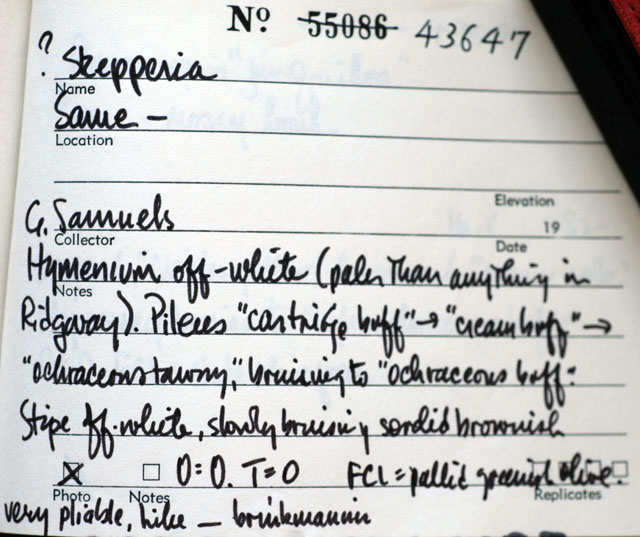 Nº 55086 43647
? Skepperia
Name
Same —
Location
Elevation
G. Samuels
19
Collector
Date
Hymenium off-white (paler than anything in
Notes
Ridgway). Pileus "cartridge buff" → "cream buff" →
"ochraceous tawny," bruising to "ochraceous buff."
Stipe off-white, slowly bruising sordid brownish
O=O. T=O FCL = pallid greenish olive.
Photo Notes Replicates
very pliable, like —